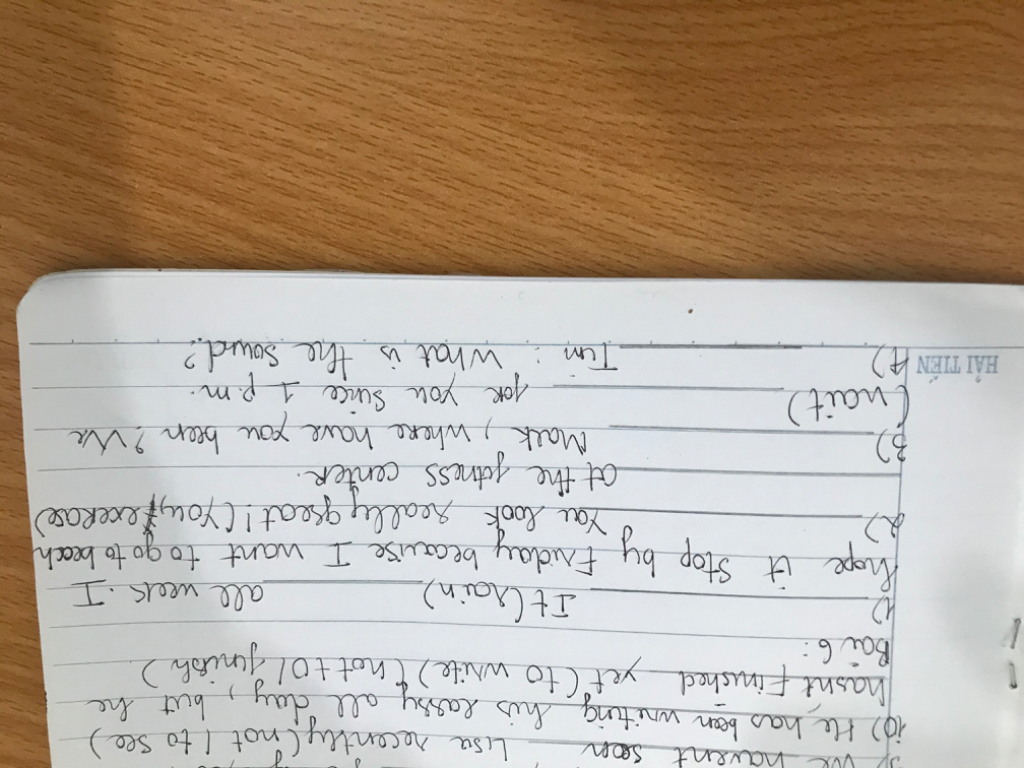 9) We havent seen Lisa recently (not / to see)
10) He has been writing his eassy all day, but he
hasnt Finished yet (to write) (not + 0 / finish)
Bài 6:
1) It (rain) all week. I
hope it stop by Friday because I want to go to beach
2) You look really great! (You, exercise)
at the fitness center.
3) Mark, where have you been? We
(wait) for you since 1 p.m.
4) Tim: What is the sound?
HẢI TIẾN